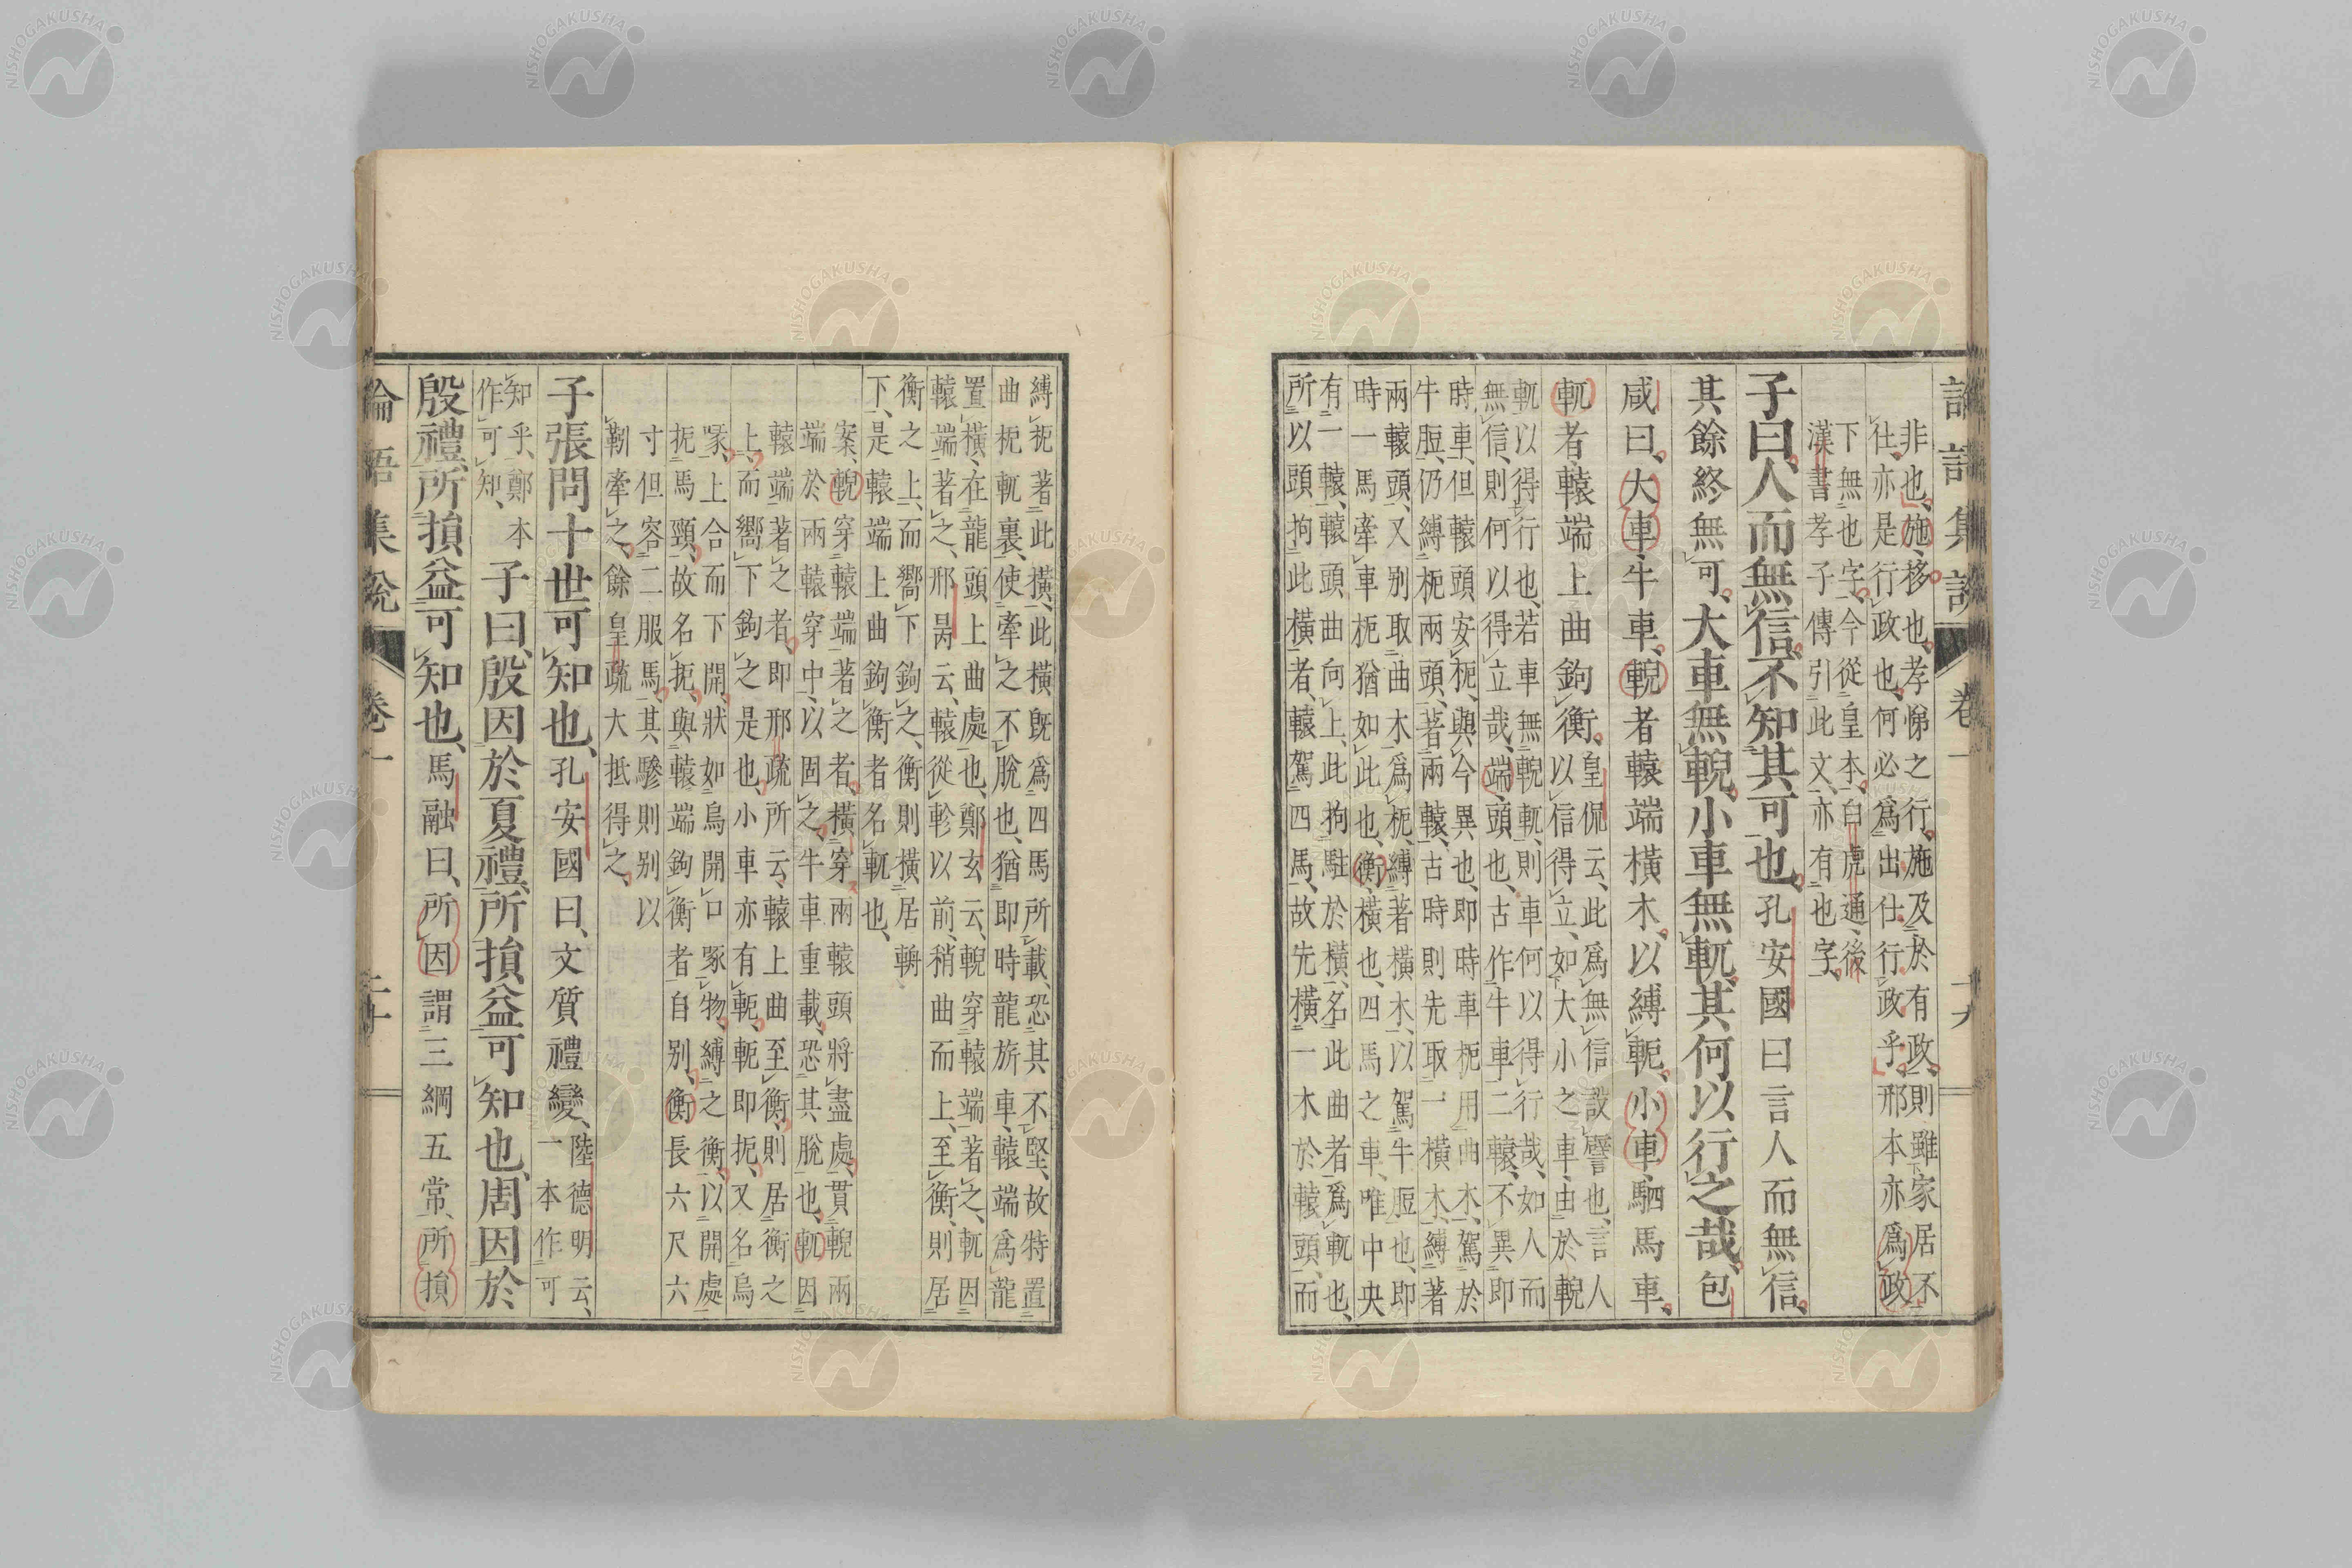 非也、施、移也、孝悌之行、施及於有政、則雖家居不
仕、亦是行政也、何必爲出仕行政乎、邢本亦爲政
下無也字、今從皇本、白虎通、後
漢書孝子傳引此文、亦有也字、
子曰、人而無信、不知其可也、孔安國曰言人而無信、
其餘終無可、大車無輗、小車無軏、其何以行之哉、包
咸曰、大車、牛車、輗者轅端橫木、以縛軛、小車、駟馬車、
軏者、轅端上曲鉤衡、
皇侃云、此爲無信設譬也、言人
以信得立、如大小之車、由於輗
軏以得行也、若車無輗軏、則車何以得行哉、如人而
無信、則何以得立哉、端、頭也、古作牛車二轅、不異即
時車、但轅頭安枙、與今異也、即時車枙用曲木、駕於
牛脰、仍縛枙兩頭、著兩轅、古時則先取一橫木、縛著
兩轅頭、又别取曲木爲枙、縛著橫木、以駕牛脰也、即
時一馬牽車枙猶如此也、衡、橫也、四馬之車、唯中央
有一轅、轅頭曲向上、此拘駐於橫、名此曲者爲軏也、
所以頭拘此橫者、轅駕四馬、故先橫一木於轅頭、而
縛枙著此橫、此橫既爲四馬所載、恐其不堅、故特置
曲枙軏裏、使牽之不脫也、猶即時龍旂車、轅端爲龍
置橫、在龍頭上曲處也、鄭玄云、輗穿轅端著之、軏因
轅端著之、邢昺云、轅從軫以前、稍曲而上、至衡、則居
衡之上、而嚮下鉤之、衡則橫居輈
下、是轅端上曲鉤衡者名軏也、
案、輗穿轅端著之者、橫穿兩轅頭將盡處、貫輗兩
端於兩轅穿中、以固之、牛車重載、恐其脫也、軏因
轅端著之者、即邢疏所云、轅上曲至衡、則居衡之
上、而嚮下鉤之是也、小車亦有軛、軛即扼、又名烏
啄、上合而下開、狀如烏開口啄物、縛之衡、以開處
扼馬頸、故名扼、與轅端鉤衡者自别、衡長六尺六
寸但容二服馬、其驂則别以
靷牽之、餘皇疏大抵得之、
子張問十世可知也、孔安國曰、文質禮變、
陸德明云、
一本作可
知乎、鄭本
作可知、
子曰、殷因於夏禮、所損益可知也、周因於
殷禮、所損益可知也、馬融曰、所因謂三綱五常、所損
論語集說
卷一
二十
卷一
十九